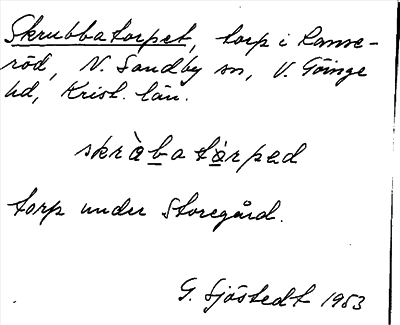 Skrubbatorpet, torp i Ramse-
röd, N. Sandby sn, V. Göinge
hd, Krist. län.
skràbatàrpəd
torp under Storegård.
G. Sjöstedt 1953